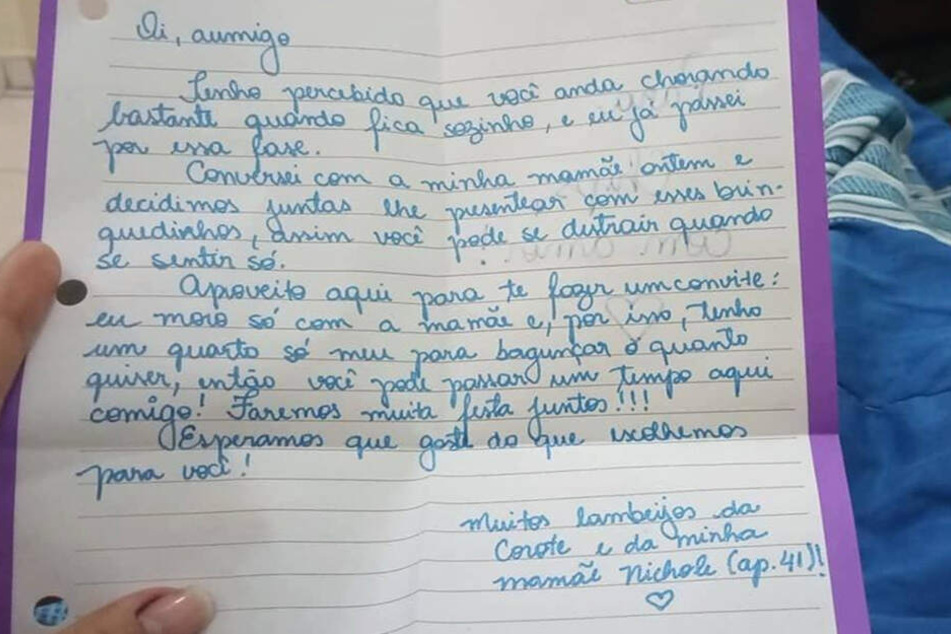 Oi, aumigo
Tenho percebido que você anda chorando
bastante quando fica sozinho, e eu já passei
por essa fase.
Conversei com a minha mamãe ontem e
decidimos juntas lhe presentear com esses brin-
quedinhos, assim você pode se distrair quando
se sentir só.
Aproveito aqui para te fazer um convite:
eu moro só com a mamãe e, por isso, tenho
um quarto só meu para bagunçar o quanto
quiser, então você pode passar um tempo aqui
comigo! Faremos muita festa juntos!!!
Esperamos que goste do que escolhemos
para você!
Muitos lambeijos da
Corote e da minha
mamãe Nichole (ap. 41)!